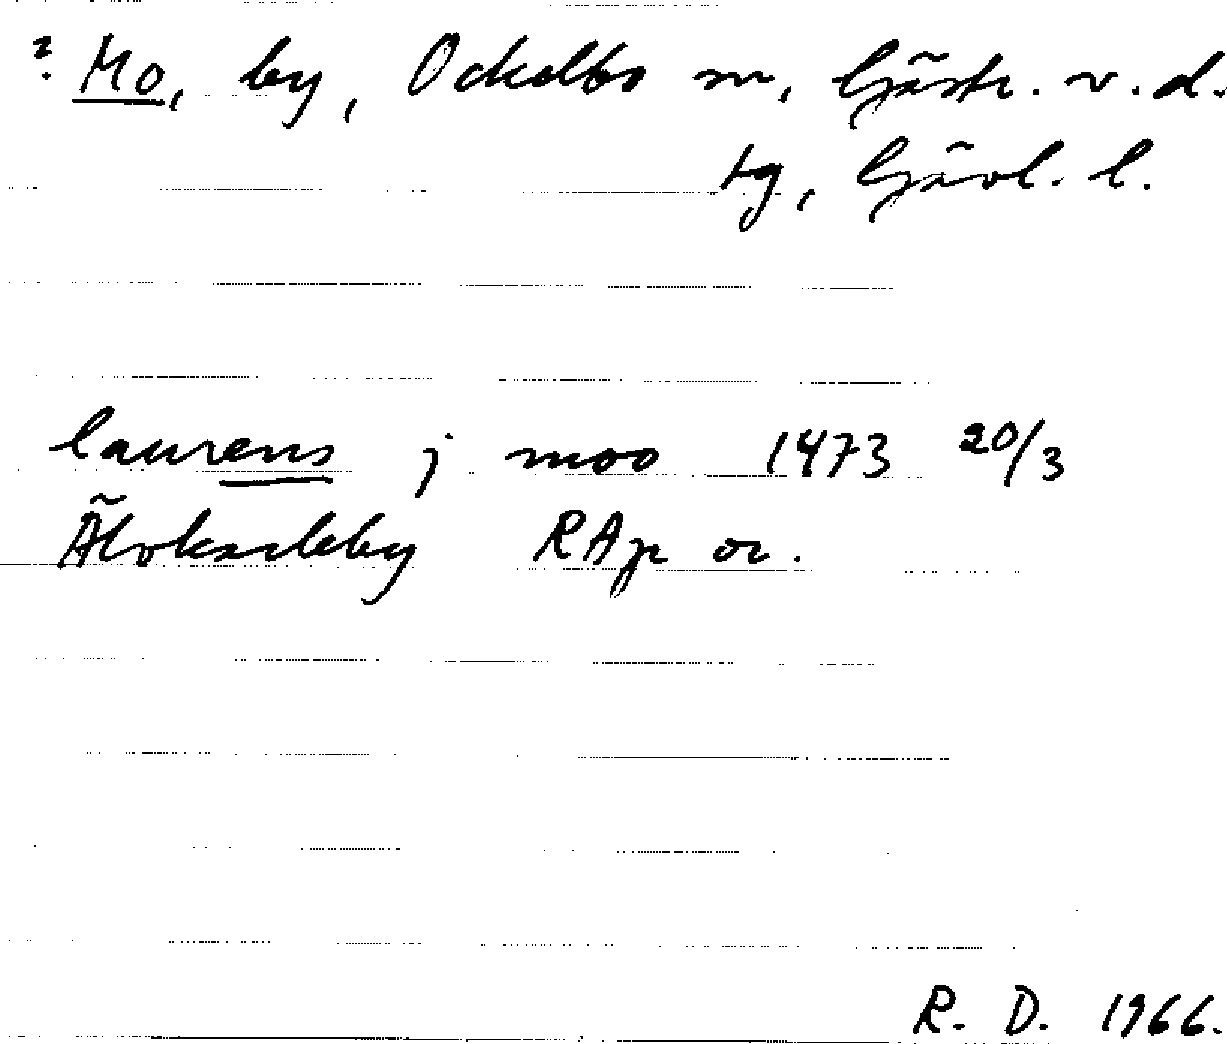 ? Mo, by, Ockelbo sn, Gästr. v. d.
tg, Gävl. l.
laurens j moo 1473 20/3
Älvkarleby RAp or.
R. D. 1966.